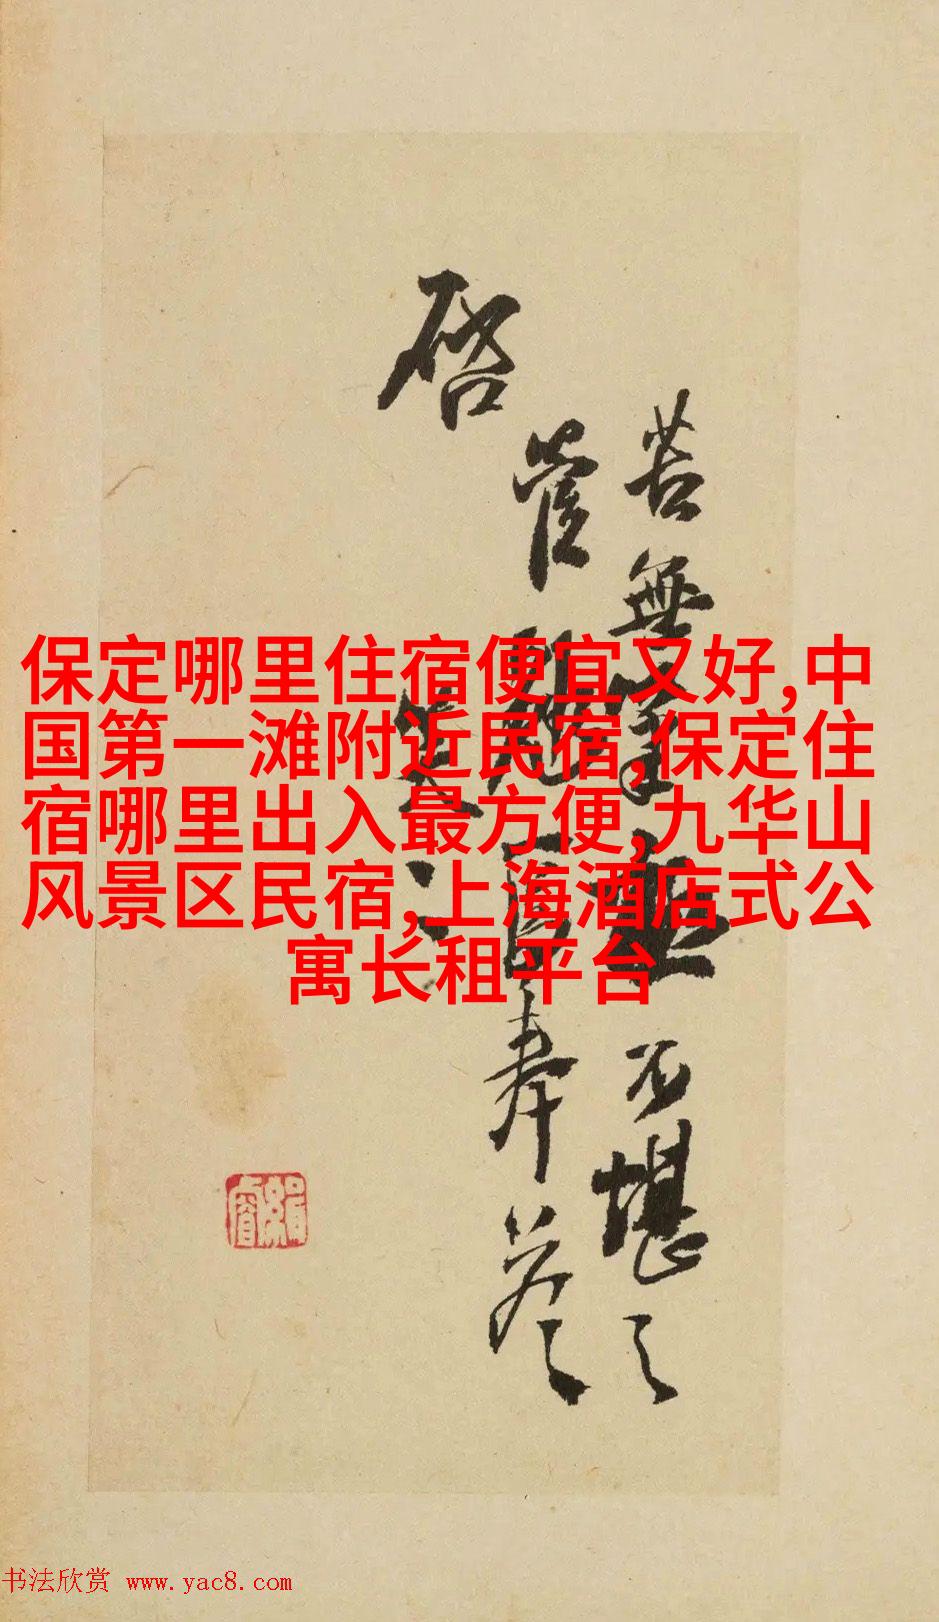 保定哪里住宿便宜又好,中
国第一滩附近民宿,保定住
宿哪里出入最方便,九华山
风景区民宿,上海酒店式公
寓长租平台
苦無
不堪之
啓
奉答
书法欣赏 www.yac8.com